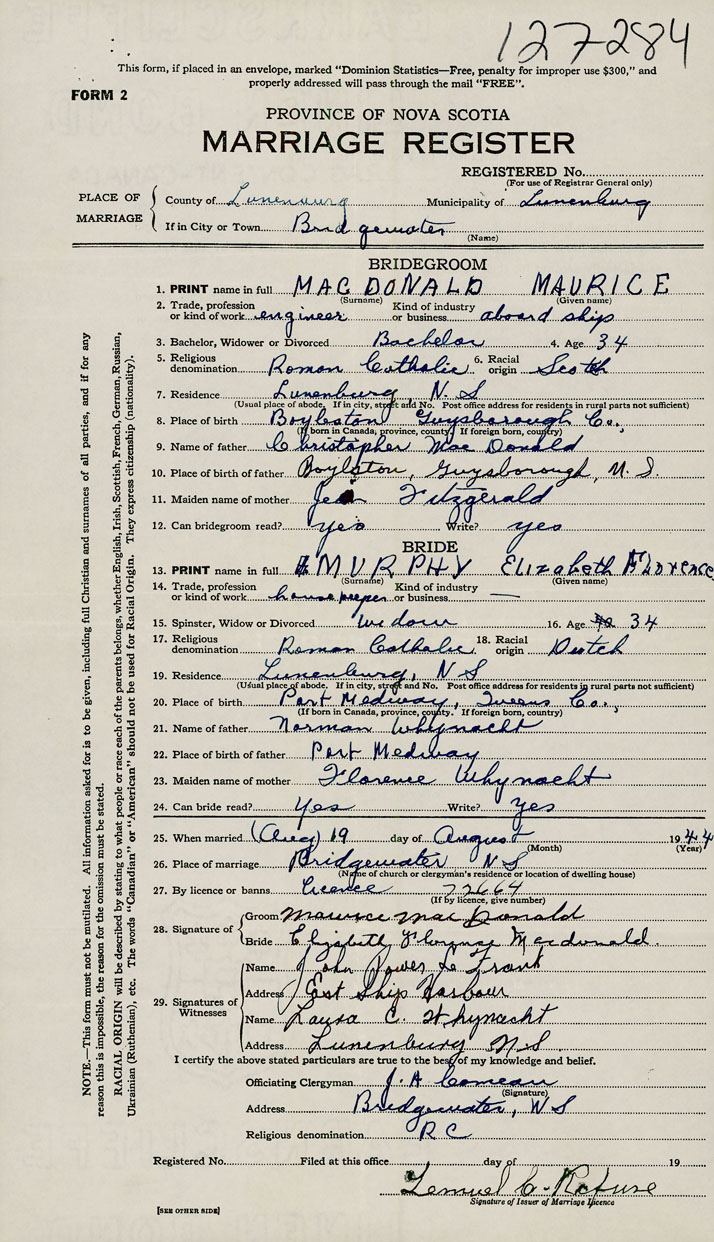 127284
This form, if placed in an envelope, marked "Dominion Statistics—Free, penalty for improper use $300," and
properly addressed will pass through the mail "FREE".
FORM 2
PROVINCE OF NOVA SCOTIA
MARRIAGE REGISTER
REGISTERED No.
(For use of Registrar General only)
PLACE OF MARRIAGE
County of Lunenburg Municipality of Lunenburg
If in City or Town Bridgewater
(Name)
BRIDEGROOM
1. PRINT name in full MACDONALD MAURICE
(Surname) (Given name)
2. Trade, profession or kind of work engineer Kind of industry or business aboard ship
3. Bachelor, Widower or Divorced Bachelor 4. Age 34
5. Religious denomination Roman Catholic 6. Racial origin Scotch
7. Residence Lunenburg, N. S
(Usual place of abode. If in city, street and No. Post office address for residents in rural parts not sufficient)
8. Place of birth Boylston Guysborough Co.,
(If born in Canada, province, county. If foreign born, country)
9. Name of father Christopher MacDonald
10. Place of birth of father Boylston, Guysborough, N. S.
11. Maiden name of mother Fitzgerald
12. Can bridegroom read? yes Write? yes
BRIDE
13. PRINT name in full MURPHY Elizabeth Florence
(Surname) (Given name)
14. Trade, profession or kind of work housekeeper Kind of industry or business —
15. Spinster, Widow or Divorced widow 16. Age 34
17. Religious denomination Roman Catholic 18. Racial origin Dutch
19. Residence Lunenburg, N S
(Usual place of abode. If in city, street and No. Post office address for residents in rural parts not sufficient)
20. Place of birth Port Medway, Queens Co.,
(If born in Canada, province, county. If foreign born, country)
21. Name of father Norman Whynacht
22. Place of birth of father Port Medway
23. Maiden name of mother Florence Whynacht
24. Can bride read? Yes Write? Yes
25. When married (Aug) 19 day of August 1944
(Month) (Year)
26. Place of marriage Bridgewater N S
(Name of church or clergyman's residence or location of dwelling house)
27. By licence or banns Licence 72664
(If by licence, give number)
28. Signature of
Groom Maurice MacDonald
Bride Elizabeth Florence Macdonald.
29. Signatures of Witnesses
Name John Power
Address East Ship Harbour
Name Laura C. Whynacht
Address Lunenburg N.S.
I certify the above stated particulars are true to the best of my knowledge and belief.
Officiating Clergyman J. A Comeau
(Signature)
Address Bridgewater, N S
Religious denomination R C
Registered No. Filed at this office day of 19
Lemuel C.
Signature of Issuer of Marriage Licence
[SEE OTHER SIDE]
NOTE.—This form must not be mutilated. All information asked for is to be given, including full Christian and surnames of all parties, and if for any
reason this is impossible, the reason for the omission must be stated.
RACIAL ORIGIN will be described by stating to what people or race each of the parents belongs, whether English, Irish, Scottish, French, German, Russian,
Ukrainian (Ruthenian), etc. The words "Canadian" or "American" should not be used for Racial Origin. They express citizenship (nationality).